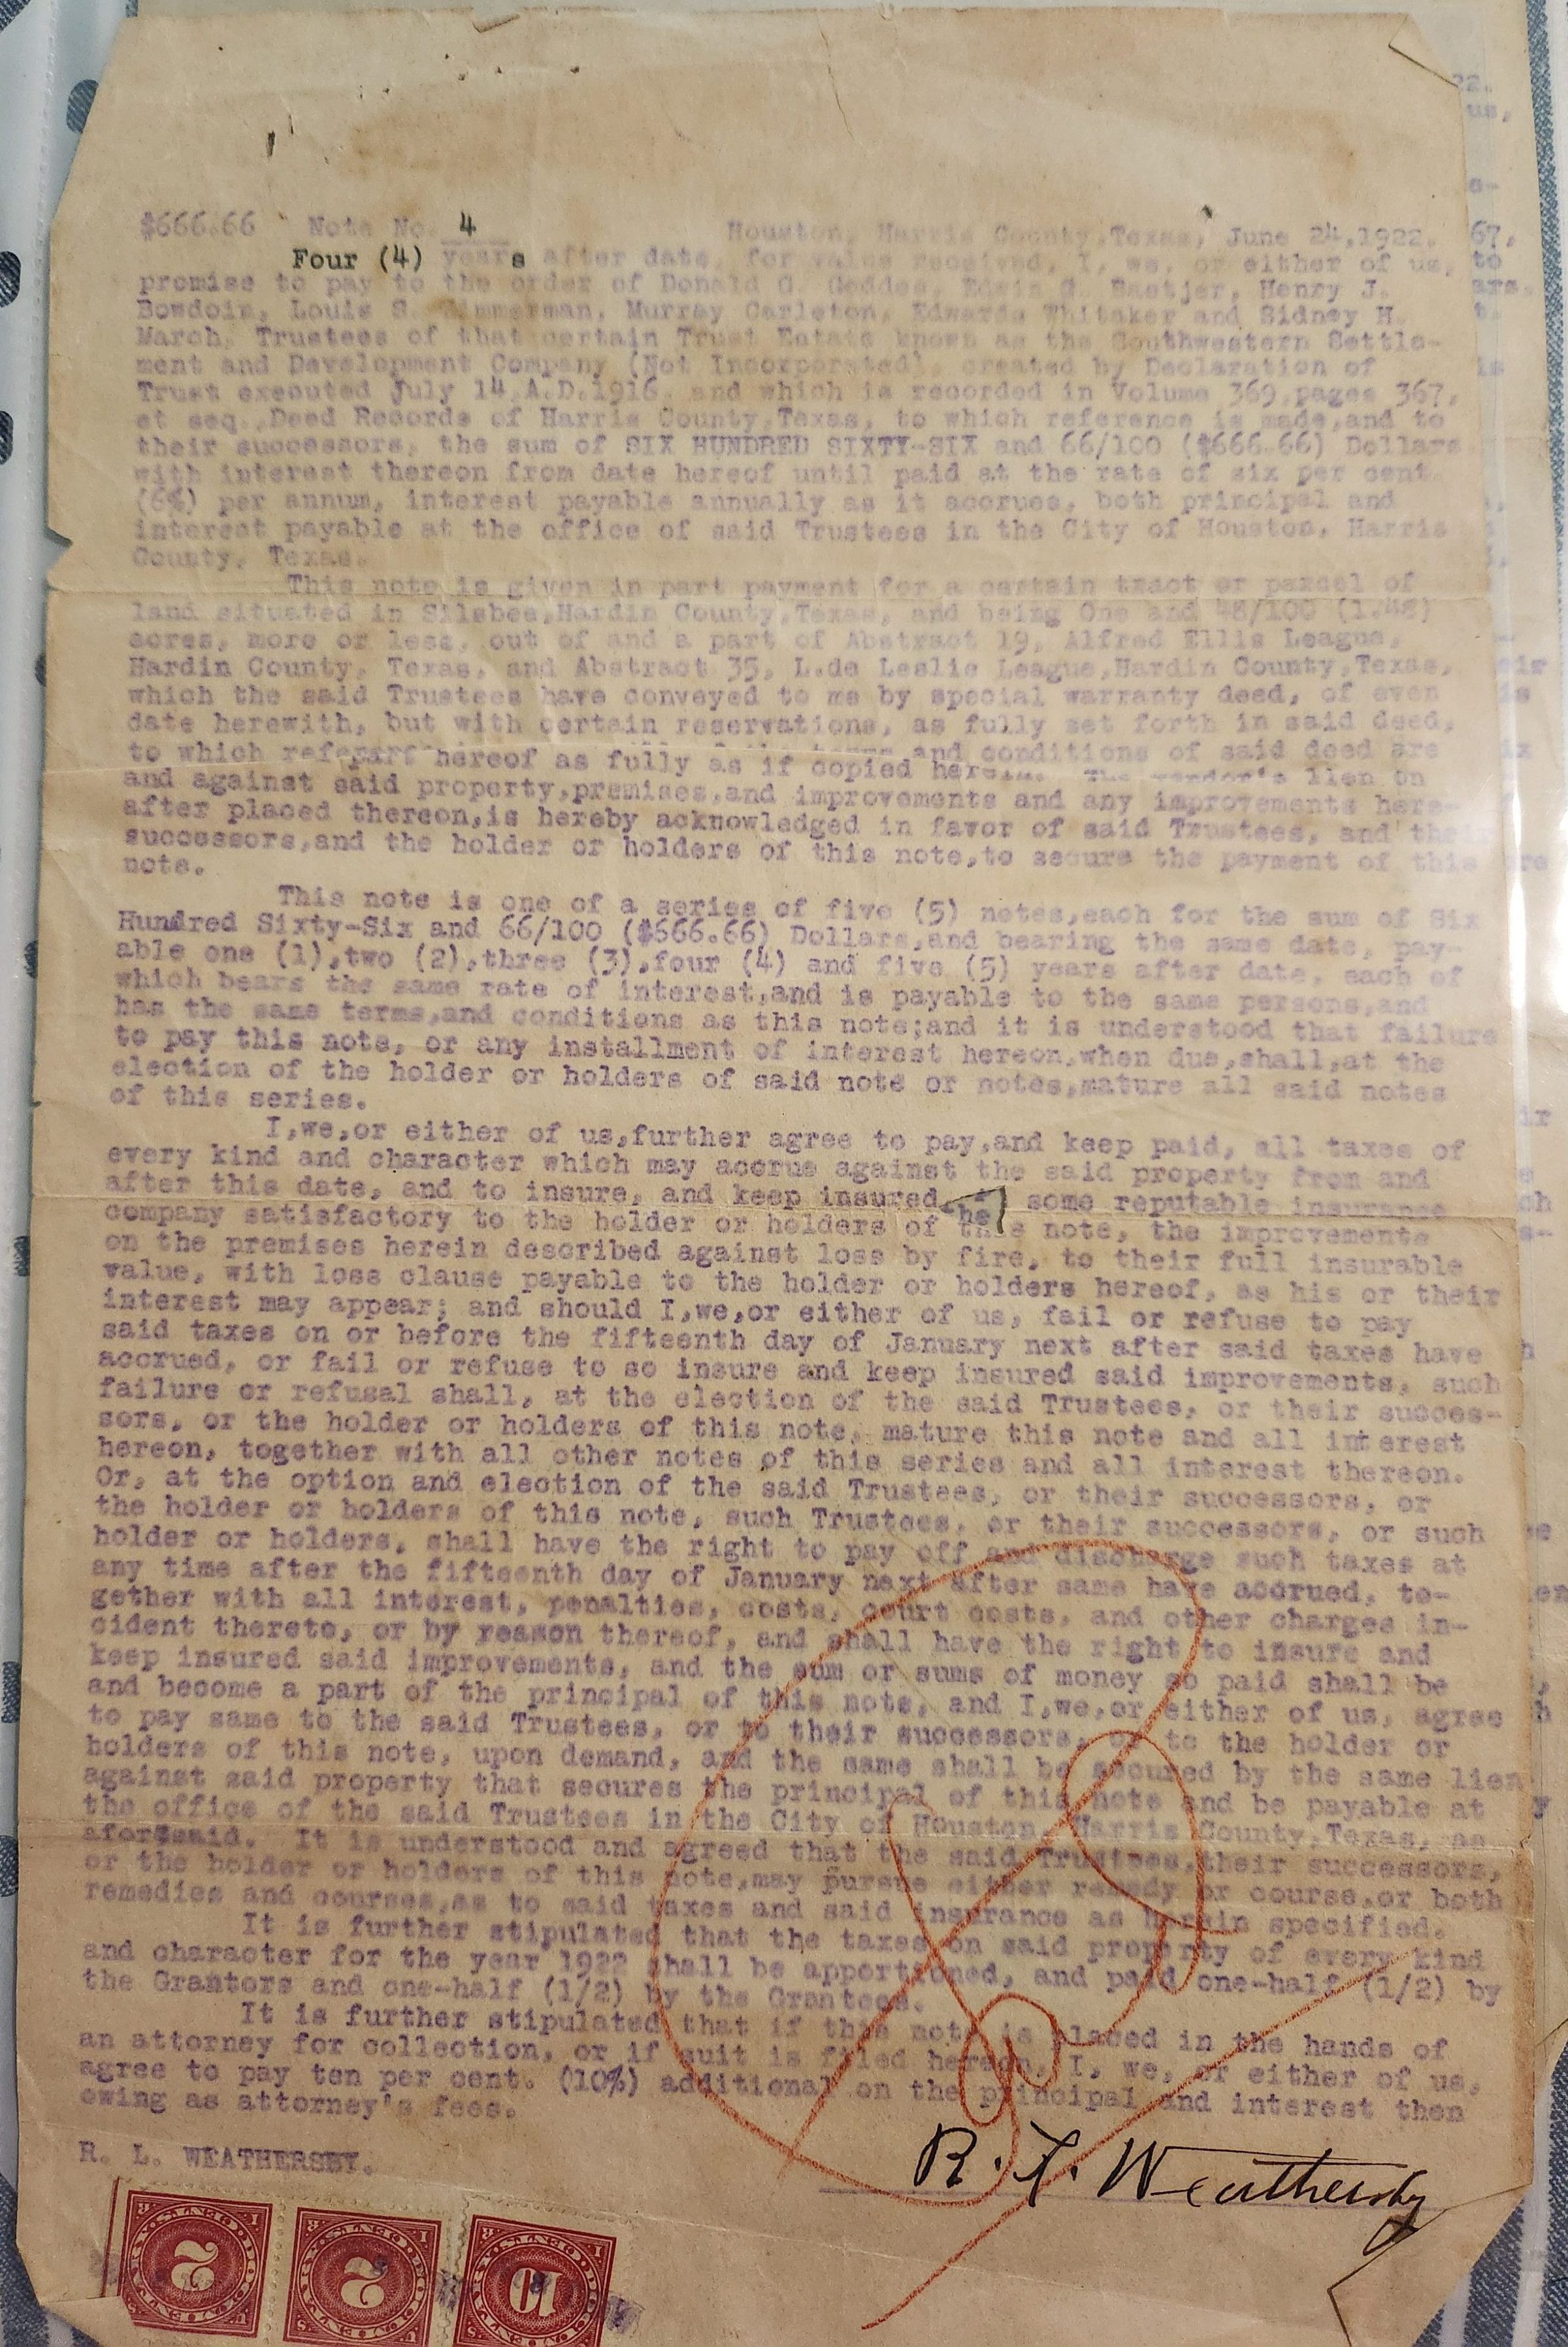 $666.66 Note No. 4 Houston, Harris County, Texas, June 24, 1922.
Four (4) years after date, for value received, I, we, or either of us, to
promise to pay to the order of Donald G. Geddes, Edwin G. Baetjer, Henry J.
Bowdoin, Louis S. Zimmerman, Murray Carleton, Edwards Whitaker and Sidney H.
March, Trustees of that certain Trust Estate known as the Southwestern Settle-
ment and Development Company (Not Incorporated), created by Declaration of
Trust executed July 14, A.D. 1916, and which is recorded in Volume 369, pages 367,
et seq., Deed Records of Harris County, Texas, to which reference is made, and to
their successors, the sum of SIX HUNDRED SIXTY-SIX and 66/100 ($666.66) Dollars
with interest thereon from date hereof until paid at the rate of six per cent.
(6%) per annum, interest payable annually as it accrues, both principal and
interest payable at the office of said Trustees in the City of Houston, Harris
County, Texas.
This note is given in part payment for a certain tract or parcel of
land situated in Silsbee, Hardin County, Texas, and being One and 48/100 (1.48)
acres, more or less, out of and a part of Abstract 19, Alfred Ellis League,
Hardin County, Texas, and Abstract 35, L.de Leslie League, Hardin County, Texas,
which the said Trustees have conveyed to me by special warranty deed, of even
date herewith, but with certain reservations, as fully set forth in said deed,
to which and conditions of said deed are
part hereof as fully as if copied herein. The vendor's lien on
and against said property, premises, and improvements and any improvements here-
after placed thereon, is hereby acknowledged in favor of said Trustees, and the
successors, and the holder or holders of this note, to secure the payment of this
note.
This note is one of a series of five (5) notes, each for the sum of Six
Hundred Sixty-Six and 66/100 ($666.66) Dollars, and bearing the same date, pay-
able one (1), two (2), three (3), four (4) and five (5) years after date, each of
which bears the same rate of interest, and is payable to the same persons, and
has the same terms, and conditions as this note; and it is understood that failure
to pay this note, or any installment of interest hereon, when due, shall, at the
election of the holder or holders of said note or notes, mature all said notes
of this series.
I, we, or either of us, further agree to pay, and keep paid, all taxes of
every kind and character which may accrue against the said property from and
after this date, and to insure, and keep insured some reputable insurance
company satisfactory to the holder or holders of this note, the improvements
on the premises herein described against loss by fire, to their full insurable
value, with loss clause payable to the holder or holders hereof, as his or their
interest may appear; and should I, we, or either of us, fail or refuse to pay
said taxes on or before the fifteenth day of January next after said taxes have
accrued, or fail or refuse to so insure and keep insured said improvements, such
failure or refusal shall, at the election of the said Trustees, or their succes-
sors, or the holder or holders of this note, mature this note and all interest
hereon, together with all other notes of this series and all interest thereon.
Or, at the option and election of the said Trustees, or their successors, or
the holder or holders of this note, such Trustees, or their successors, or such
holder or holders, shall have the right to pay off and discharge such taxes at
any time after the fifteenth day of January next after same have accrued, to-
gether with all interest, penalties, costs, court costs, and other charges in-
cident thereto, or by reason thereof, and shall have the right to insure and
keep insured said improvements, and the sum or sums of money so paid shall be
and become a part of the principal of this note, and I, we, or either of us, agree
to pay same to the said Trustees, or to their successors, or to the holder or
holders of this note, upon demand, and the same shall be secured by the same lien
against said property that secures the principal of this note and be payable at
the office of the said Trustees in the City of Houston, Harris County, Texas, as
aforesaid. It is understood and agreed that the said Trustees, their successors,
or the holder or holders of this note, may pursue either remedy or course, or both
remedies and courses, as to said taxes and said insurance as herein specified.
It is further stipulated that the taxes on said property of every kind
and character for the year 1922 shall be apportioned, and paid one-half (1/2) by
the Grantors and one-half (1/2) by the Grantees.
It is further stipulated that if this note is placed in the hands of
an attorney for collection, or if suit is filed hereon, I, we, or either of us,
agree to pay ten per cent. (10%) additional on the principal and interest then
owing as attorney's fees.
R. L. WEATHERSBY.
R. L. Weathersby
2
2
10